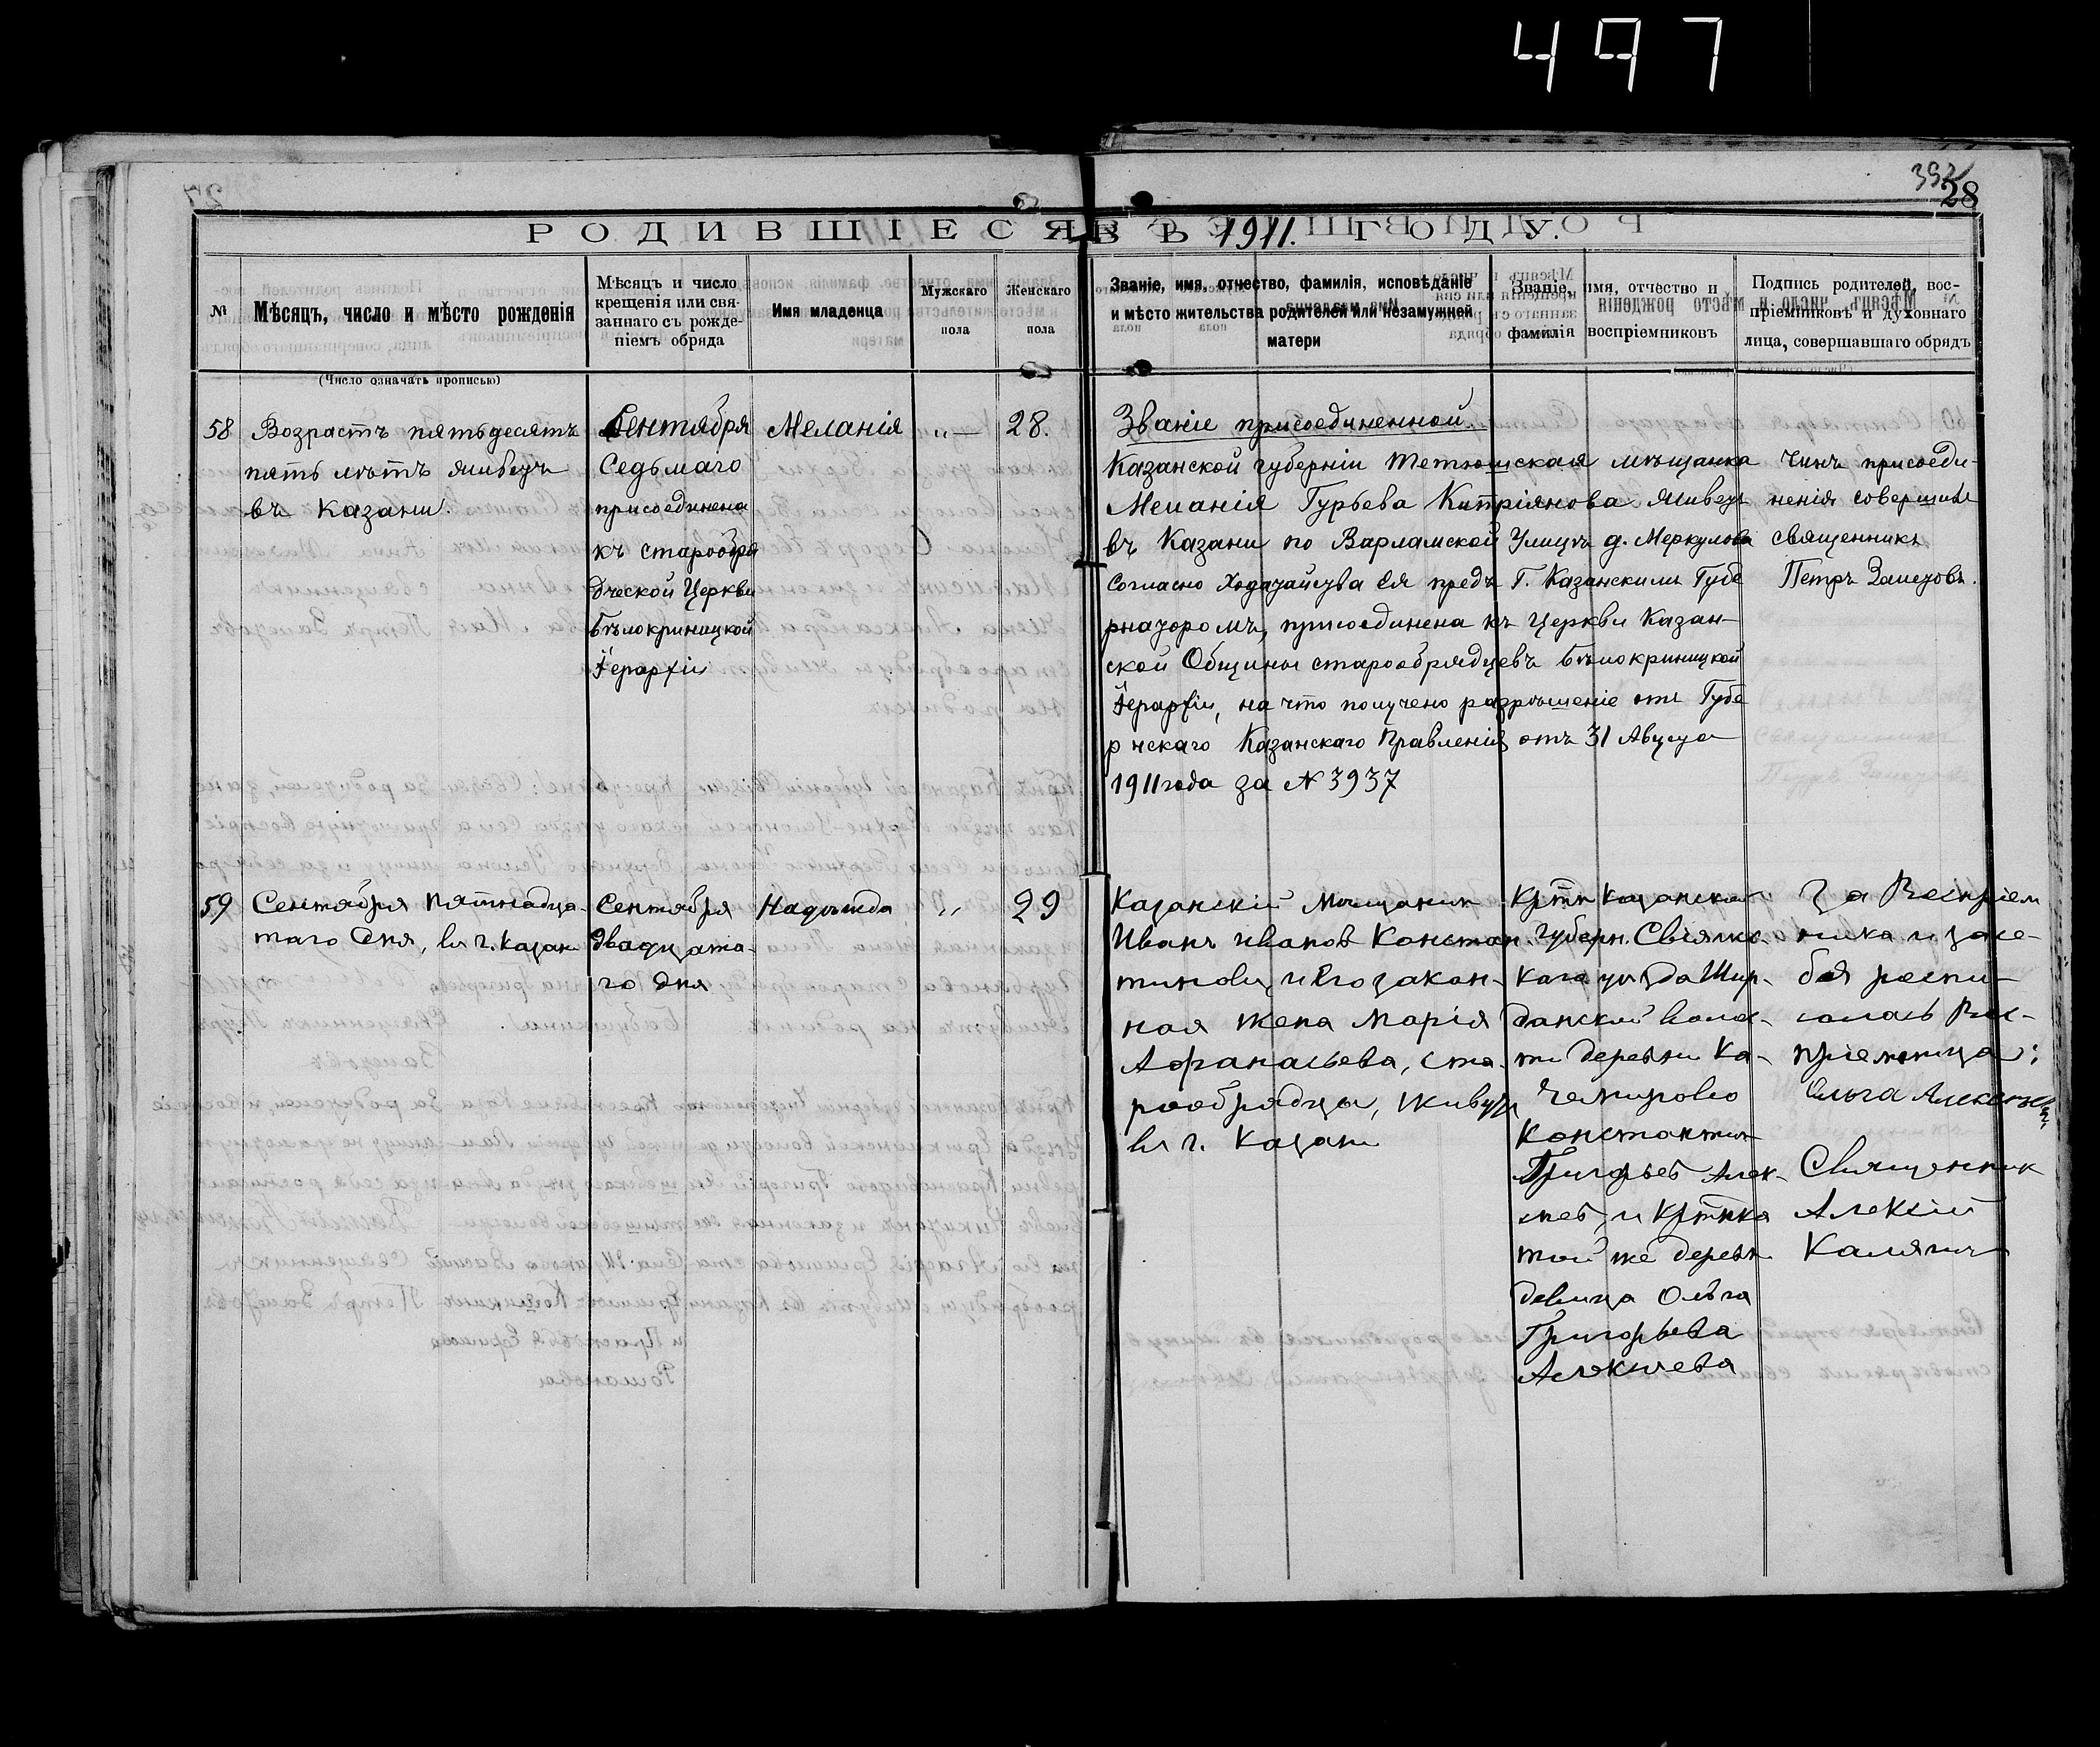 497
392
28
РОДИВШІЕСЯ ВЪ 1911. ГОДУ.
№
Мѣсяцъ, число и мѣсто рожденія
(Число означать прописью)
Мѣсяцъ и число
крещенія или свя-
заннаго съ рожде-
ніемъ обряда
Имя младенца
Мужскаго
пола
Женскаго
пола
Званіе, имя, отчество, фамилія, исповѣданіе
и мѣсто жительства родителей или незамужней
матери
Званіе, имя, отчество и
фамилія воспріемниковъ
Подпись родителей, вос-
пріемниковъ и духовнаго
лица, совершавшаго обрядъ
58
Возрастъ пятьдесятъ
пять лѣтъ живетъ
въ Казани.
Сентября
Седьмаго
присоединена
къ старообря
дческой Церкви
Бѣлокриницкой
Іерархіи
Меланія
„ —
28.
Званіе присоединенной.
Казанской губерніи Тетюшская мѣщанка
Меланія Гурьева Китріянова живетъ
въ Казани по Варламской Улицѣ д. Меркулова
Согласно Ходатайства Ея предъ Г. Казанскимъ Губе
рнаторомъ, присоединена къ Церкви Казан-
ской Общины старообрядцевъ Бѣлокриницкой
Іерархіи, на что получено разрѣшеніе отъ Губе
рнскаго Казанскаго Правленія отъ 31 Августа
1911 года за № 3937
Чинъ присоеди-
ненія совершилъ
священникъ
Петръ Залетовъ.
59
Сентября пятнадца-
таго дня, въ г. Казан
Сентября
двадцата-
го дня
Надежда
„
29
Казанскій мѣщанинъ
Иванъ Ивановъ Констан-
тиновъ и Его закон-
ная жена Марія
Афанасьева, ста-
рообрядцы, живутъ
въ г. Казани
Кртн Казанской
Губерн. Свіяжс-
каго уѣзда Шир-
данской волос-
ти деревни Ка-
чемирово
Константинъ
Григорьев Алек-
сеев, и Кртнка
той же деревн
девица Ольга
Григорьева
Алексеева
За Воспріем
ника и за се-
бя роспи-
салась Вос-
пріемница:
Ольга Алексеева
Священник
Алексій
Калягинъ